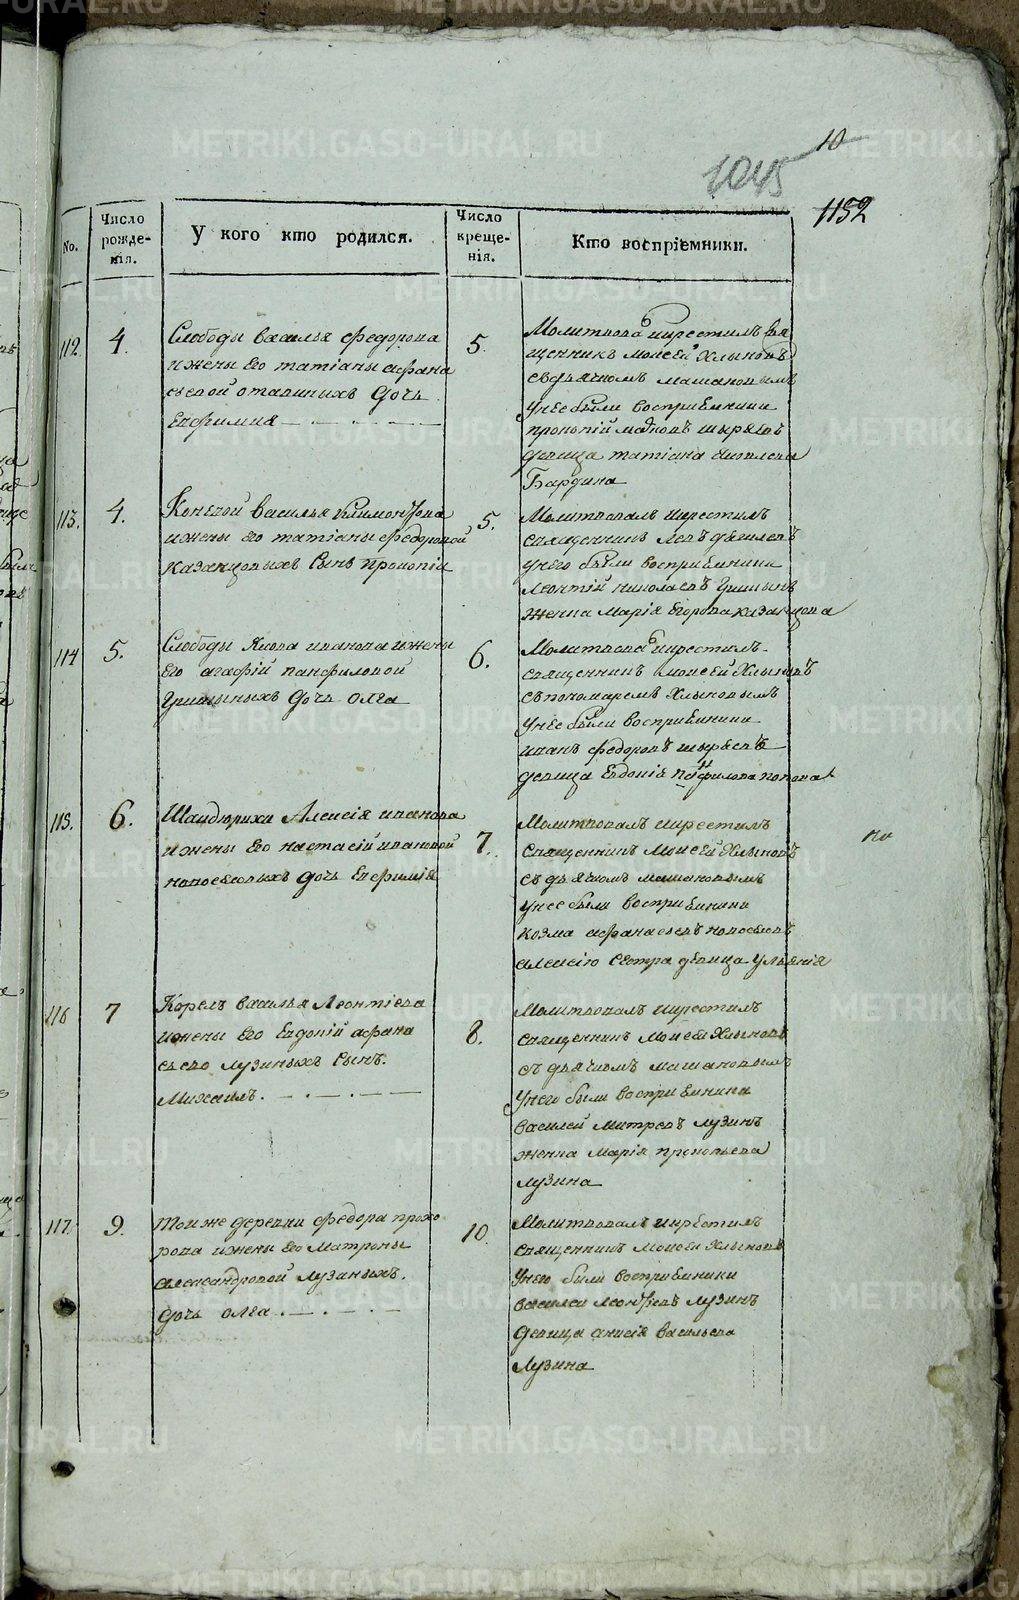 10
1045
1152
No.
Число рожде-нія.
У кого кто родился.
Число креще-нія.
Кто воспріемники.
112
4.
Слободы василья федорова
ижены Его татіаны афана
сьевой
дочь
Евфимия
5.
Молитвова и крестилъ свя
щенникъ Моисей Хлыновъ
съдьячкомъ машановымъ
унее были восприемники
прокопій
девица татіана яковлева
Бардина
113.
4.
Коневой василья
ижены Его татіаны федоровой
казанцовыхъ сынъ прокопіи
5.
Молитвовалъ икрестилъ
священникъ левъ
унего были восприемники
леонтій николаевъ гришинъ
женка марія Егорова казанцова
114
5.
Слободы якова иванова ижены
Его агафіи панфиловой
гришиныхъ дочь олга
6.
Молитвова икрестилъ
священникъ моисей Хлыновъ
съпономаремъ Хлыновымъ
унее были восприемники
иванъ федоровъ
девица Евдокія панфилова попова
115.
6.
Шандюрихи Алексія иванова
ижены Его настасіи ивановой
новоселовыхъ дочь Евфимія
7.
Молитвовалъ икрестилъ
священникъ Моисей Хлыновъ
съ дьячкомъ машановымъ
унее были восприемники
козма афанасьевъ новоселовъ
алексію сестра девица ульянія
116
7
Корелъ василья Леонтіева
ижены Его Евдокіи афана
сьево лузиныхъ сынъ.
Михаилъ.
8.
Молитвовалъ икрестилъ
священникъ Моисей Хлыновъ
съ дьячкомъ машановымъ
унего были восприемники
василей митревъ лузинъ
женка марія прокопьева
лузина
117.
9.
тоиже деревни федора прохо
рова ижены Его Матроны
александровой лузиныхъ.
дочь олга.
10.
Молитвовалъ икрестилъ
священникъ моисеи Хлыновъ
унего были восприемники
василеи леонтіевъ лузинъ
девица анисія васильева
лузина
METRIKI.GASO-URAL.RU